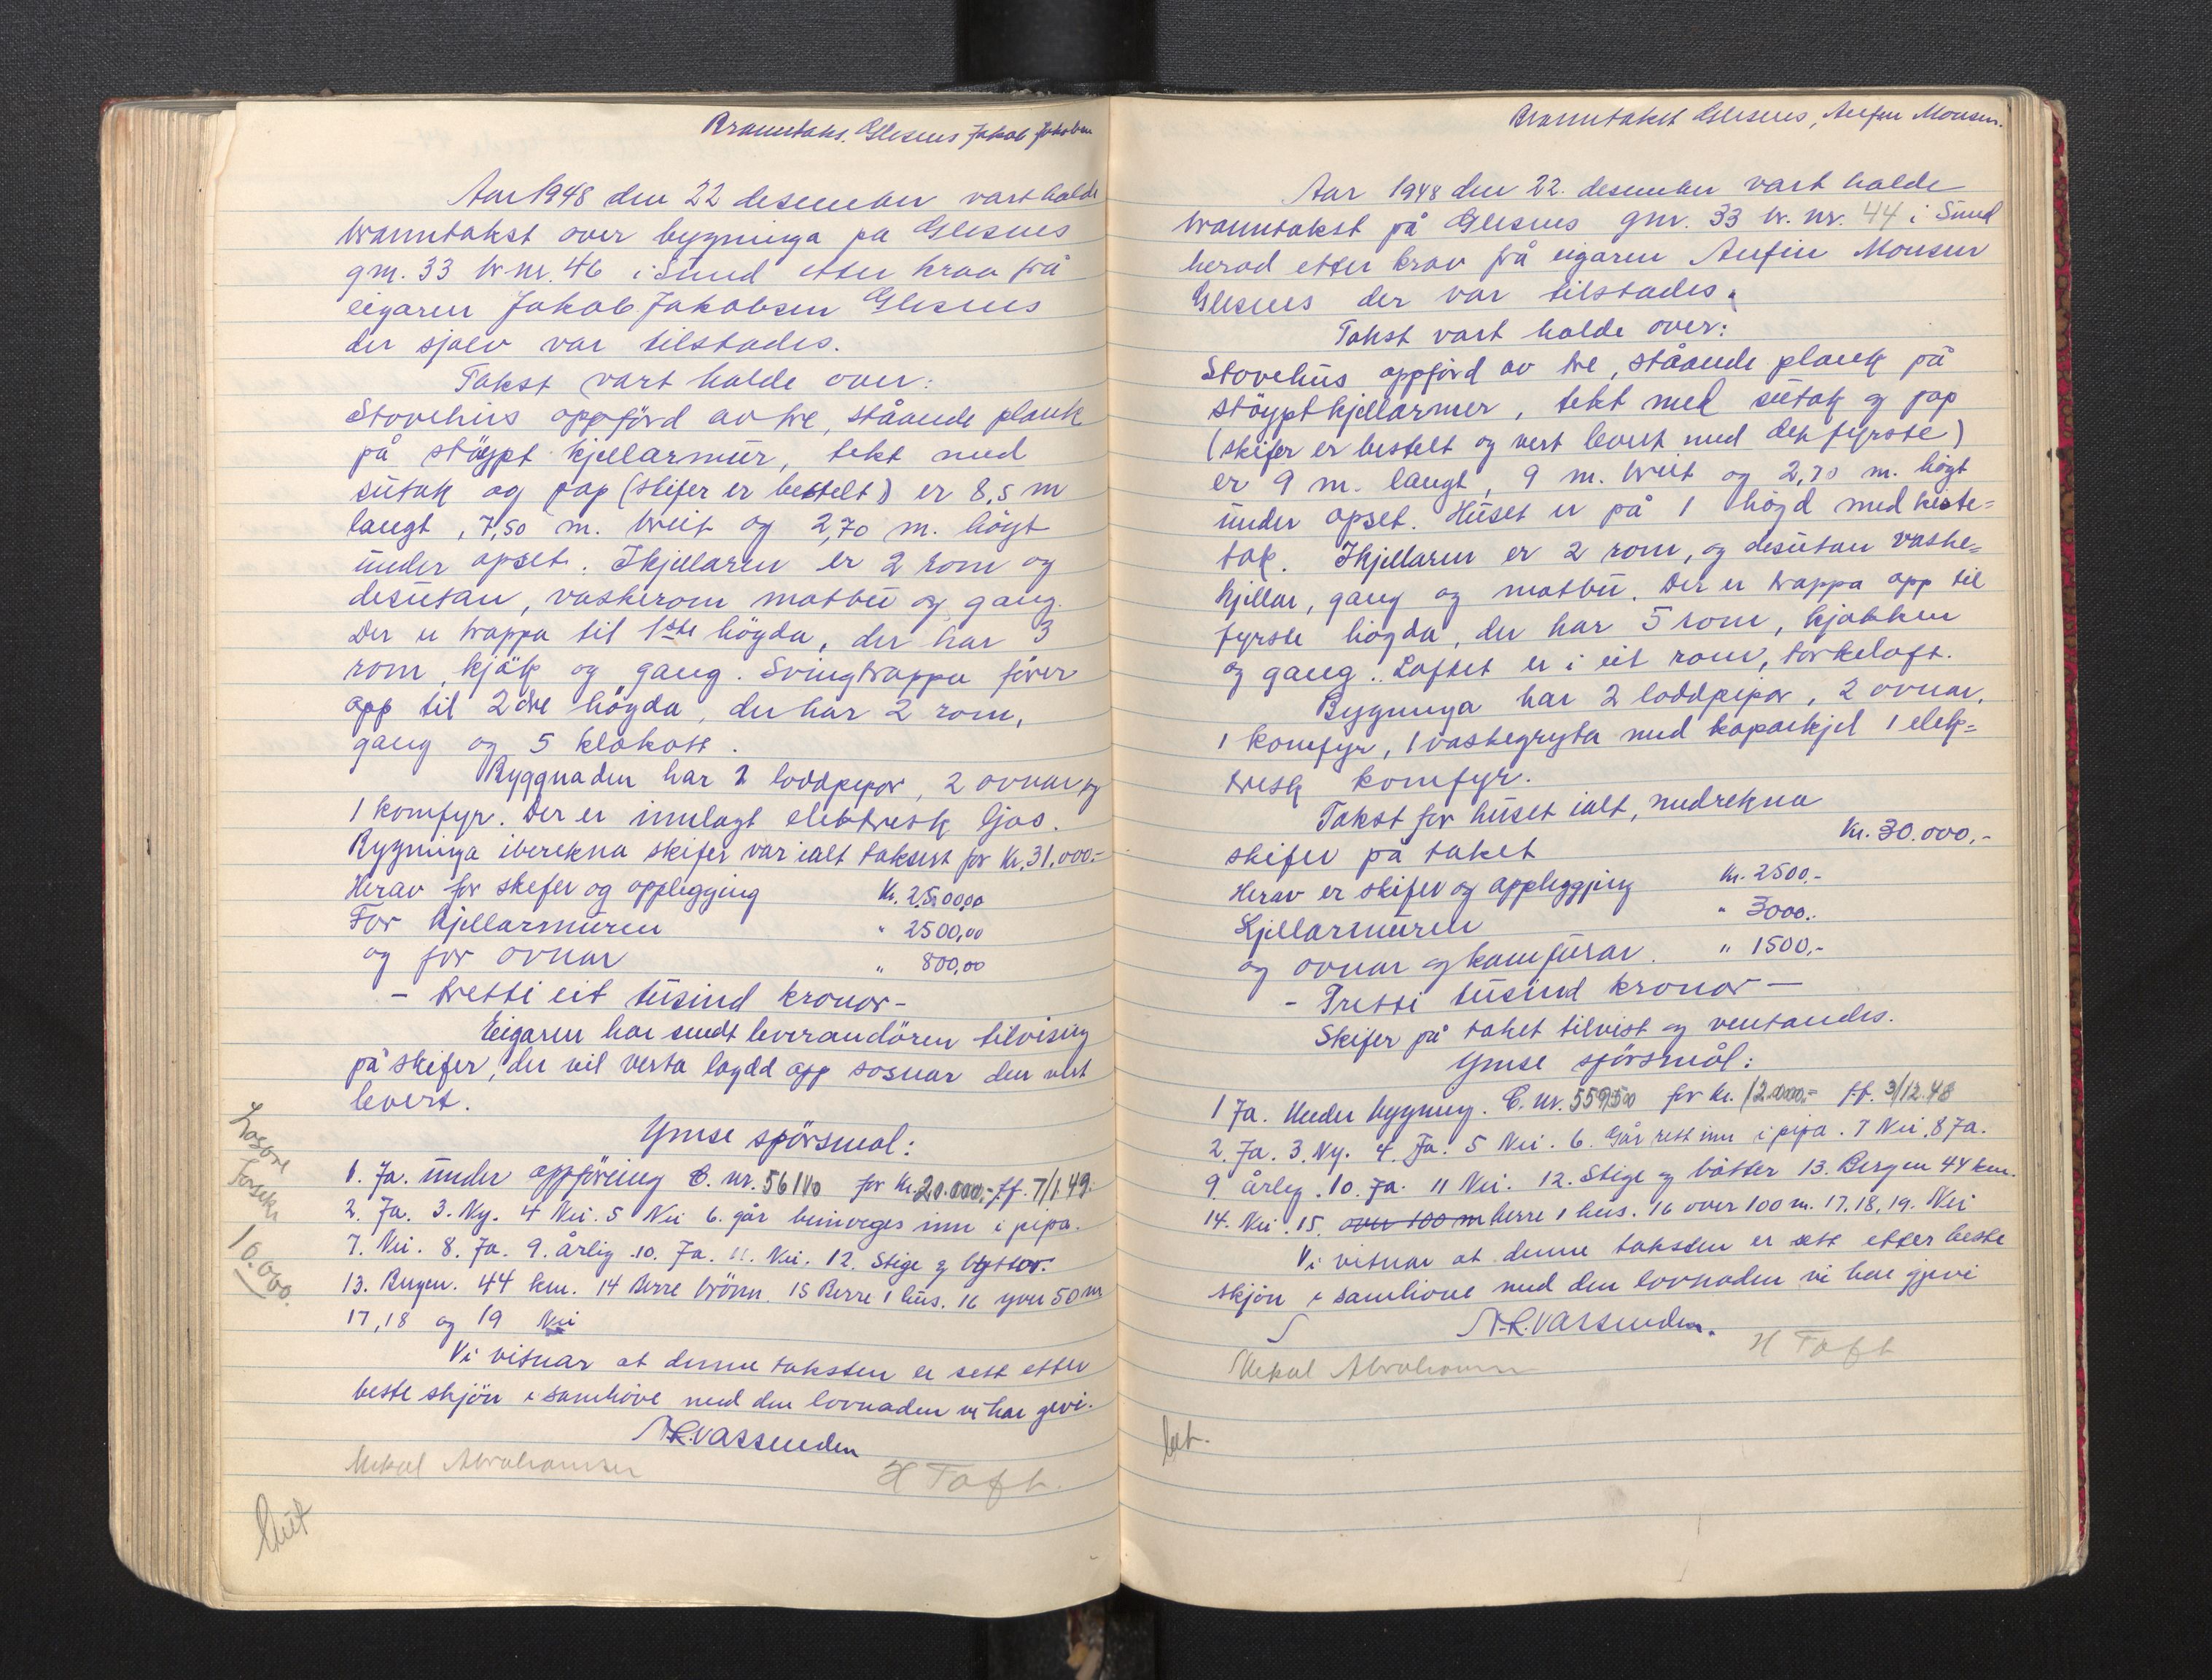 Branntakst. Glesnes Jakob Jakobsen
Aar 1948 den 22 desember vart halde
branntakst over bygninga pa Glesnes
gnr. 33 br. nr. 46 i Sund etter krav frå
eigaren Jakob Jakobsen Glesnes
der sjølv var tilstades.
Takst vart halde over:
Stovehus oppförd av tre, stående plank
på stöypt kjellarmur, tekt med
sutak og pap (skifer er bestelt) er 8,5 m
langt, 7,50 m. breit og 2,70 m. högt
under opset. Ikjellaren er 2 rom og
desutan, vaskerom matbu og gang.
Der er trappa til 1ste högda, der har 3
rom, kjök og gang. Svingtrappa förer
opp til 2dre högda, der har 2 rom,
gang og 5 klokott.
Byggnaden har 2 loddpipor, 2 ovnar og
1 komfyr. Der er innlagt elektrisk ljos.
Bygninga iberekna skifer var ialt taksert for Kr. 31.000.-
Herav for skefer og opplegging Kr. 2500,00
For kjellarmuren " 2500,00
og for ovnar " 800,00
- tretti eit tusind kronor -
Eigaren har sendt leverandören tilvising
på skifer, der vil verta lagdd opp sosnar den vert
levert.
Ymse spörsmal:
1. Ja. under oppföring C. nr. 56140 for kr. 20.000,- f.f. 7/1.49.
2. Ja. 3. Ny. 4 Nei. 5 Nei 6. går beinveges inn i pipa.
7. Nei. 8. Ja. 9. årlig. 10. Ja. 11. Nei. 12. Stige og byttor.
13. Bergen. 44 km. 14 Berre brönn. 15 Berre 1 hus. 16 yver 50 m
17, 18 og 19 Nei
Vi vitnar at denne taksten er sett etter
beste skjön i samhöve med den lovnaden vi har gjevi.
N.R. Vassenden
Mikal Abrahamsen
H Toft.
Lagere
forsikr
10.000.
Branntakst Glesnes, Anfin Monsen.
Aar 1948 den 22. desember vart halde
branntakst på Glesnes gnr. 33 br. nr. 44 i Sund
herad etter krav frå eigaren Anfin Monsen
Glesnes der var tilstades.
Takst vart halde over:
Stovehus oppförd av tre, stående plank på
stöypt kjellarmur, tekt med sutak og pap
(skifer er bestelt og vert levert med det fyrste)
er 9 m. langt, 9 m. breit og 2,70 m. högt
under opset. Huset er på 1 högd med heste-
tak. Ikjellaren er 2 rom, og desutan vaske-
kjellar, gang og matbu. Der er trappa opp til
fyrste högda, der har 5 rom, kjøkken
og gang. Loftet er i eit rom, törkeloft.
Bygninga har 2 loddpipor, 2 ovnar,
1 komfyr, 1 vaskegryta med koparkjel 1 elek-
trisk komfyr.
Takst for huset ialt, medrekna
skifer på taket Kr. 30.000,-
Herav er skifer og opplegging Kr. 2500.-
Kjellarmuren " 3000.-
og ovnar og komfurar. " 1500,-
- Tretti tusind kronor -
Skifer på taket tilvist og ventandes.
Ymse spörsmål:
1 Ja. Under bygning. C. nr. 559500 for kr. 12.000,- f.f. 3/12.48
2. Ja. 3. Ny. 4. Ja. 5 Nei. 6. Går rett inn i pipa. 7 Nei. 8 Ja.
9. årleg. 10. Ja. 11 Nei. 12. Stige og bötter 13. Bergen 44 km.
14. Nei. 15. over 100 m berre 1 hus. 16 over 100 m. 17, 18, 19. Nei
Vi vitnar at denne taksten er sett etter beste
skjön i samhöve med den lovnaden vi har gjevi
N.R. Vassenden.
Mikal Abrahamsen
H Toft